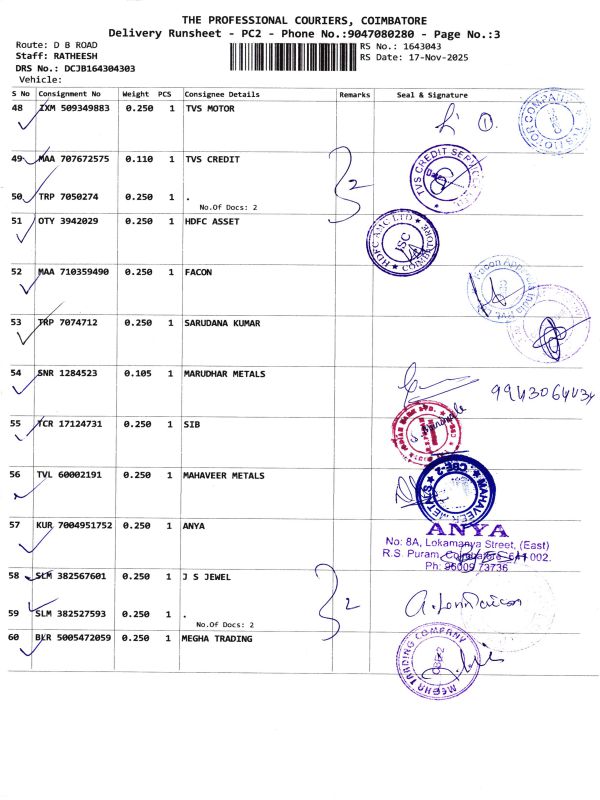 THE PROFESSIONAL COURIERS, COIMBATORE
Delivery Runsheet - PC2 - Phone No.:9047080280 - Page No.:3
Route: D B ROAD RS No.: 1643043
Staff: RATHEESH RS Date: 17-Nov-2025
DRS No.: DCJB164304303
Vehicle:
S No Consignment No Weight PCS Consignee Details Remarks Seal & Signature
48 IXM 509349883 0.250 1 TVS MOTOR
49 MAA 707672575 0.110 1 TVS CREDIT 2
50 TRP 7050274 0.250 1 .
No.Of Docs: 2
51 OTY 3942029 0.250 1 HDFC ASSET
52 MAA 710359490 0.250 1 FACON
53 TRP 7074712 0.250 1 SARUDANA KUMAR
54 SNR 1284523 0.105 1 MARUDHAR METALS
55 TCR 17124731 0.250 1 SIB
56 TVL 60002191 0.250 1 MAHAVEER METALS
57 KUR 7004951752 0.250 1 ANYA
ANYA
No: 8A, Lokamanya Street, (East)
R.S. Puram, Coimbatore-641 002.
Ph: 96009 73736
58 SLM 382567601 0.250 1 J S JEWEL 2
59 SLM 382527593 0.250 1 .
No.Of Docs: 2
60 BLR 5005472059 0.250 1 MEGHA TRADING
MEGHA TRADING COMPANY
CBE-2